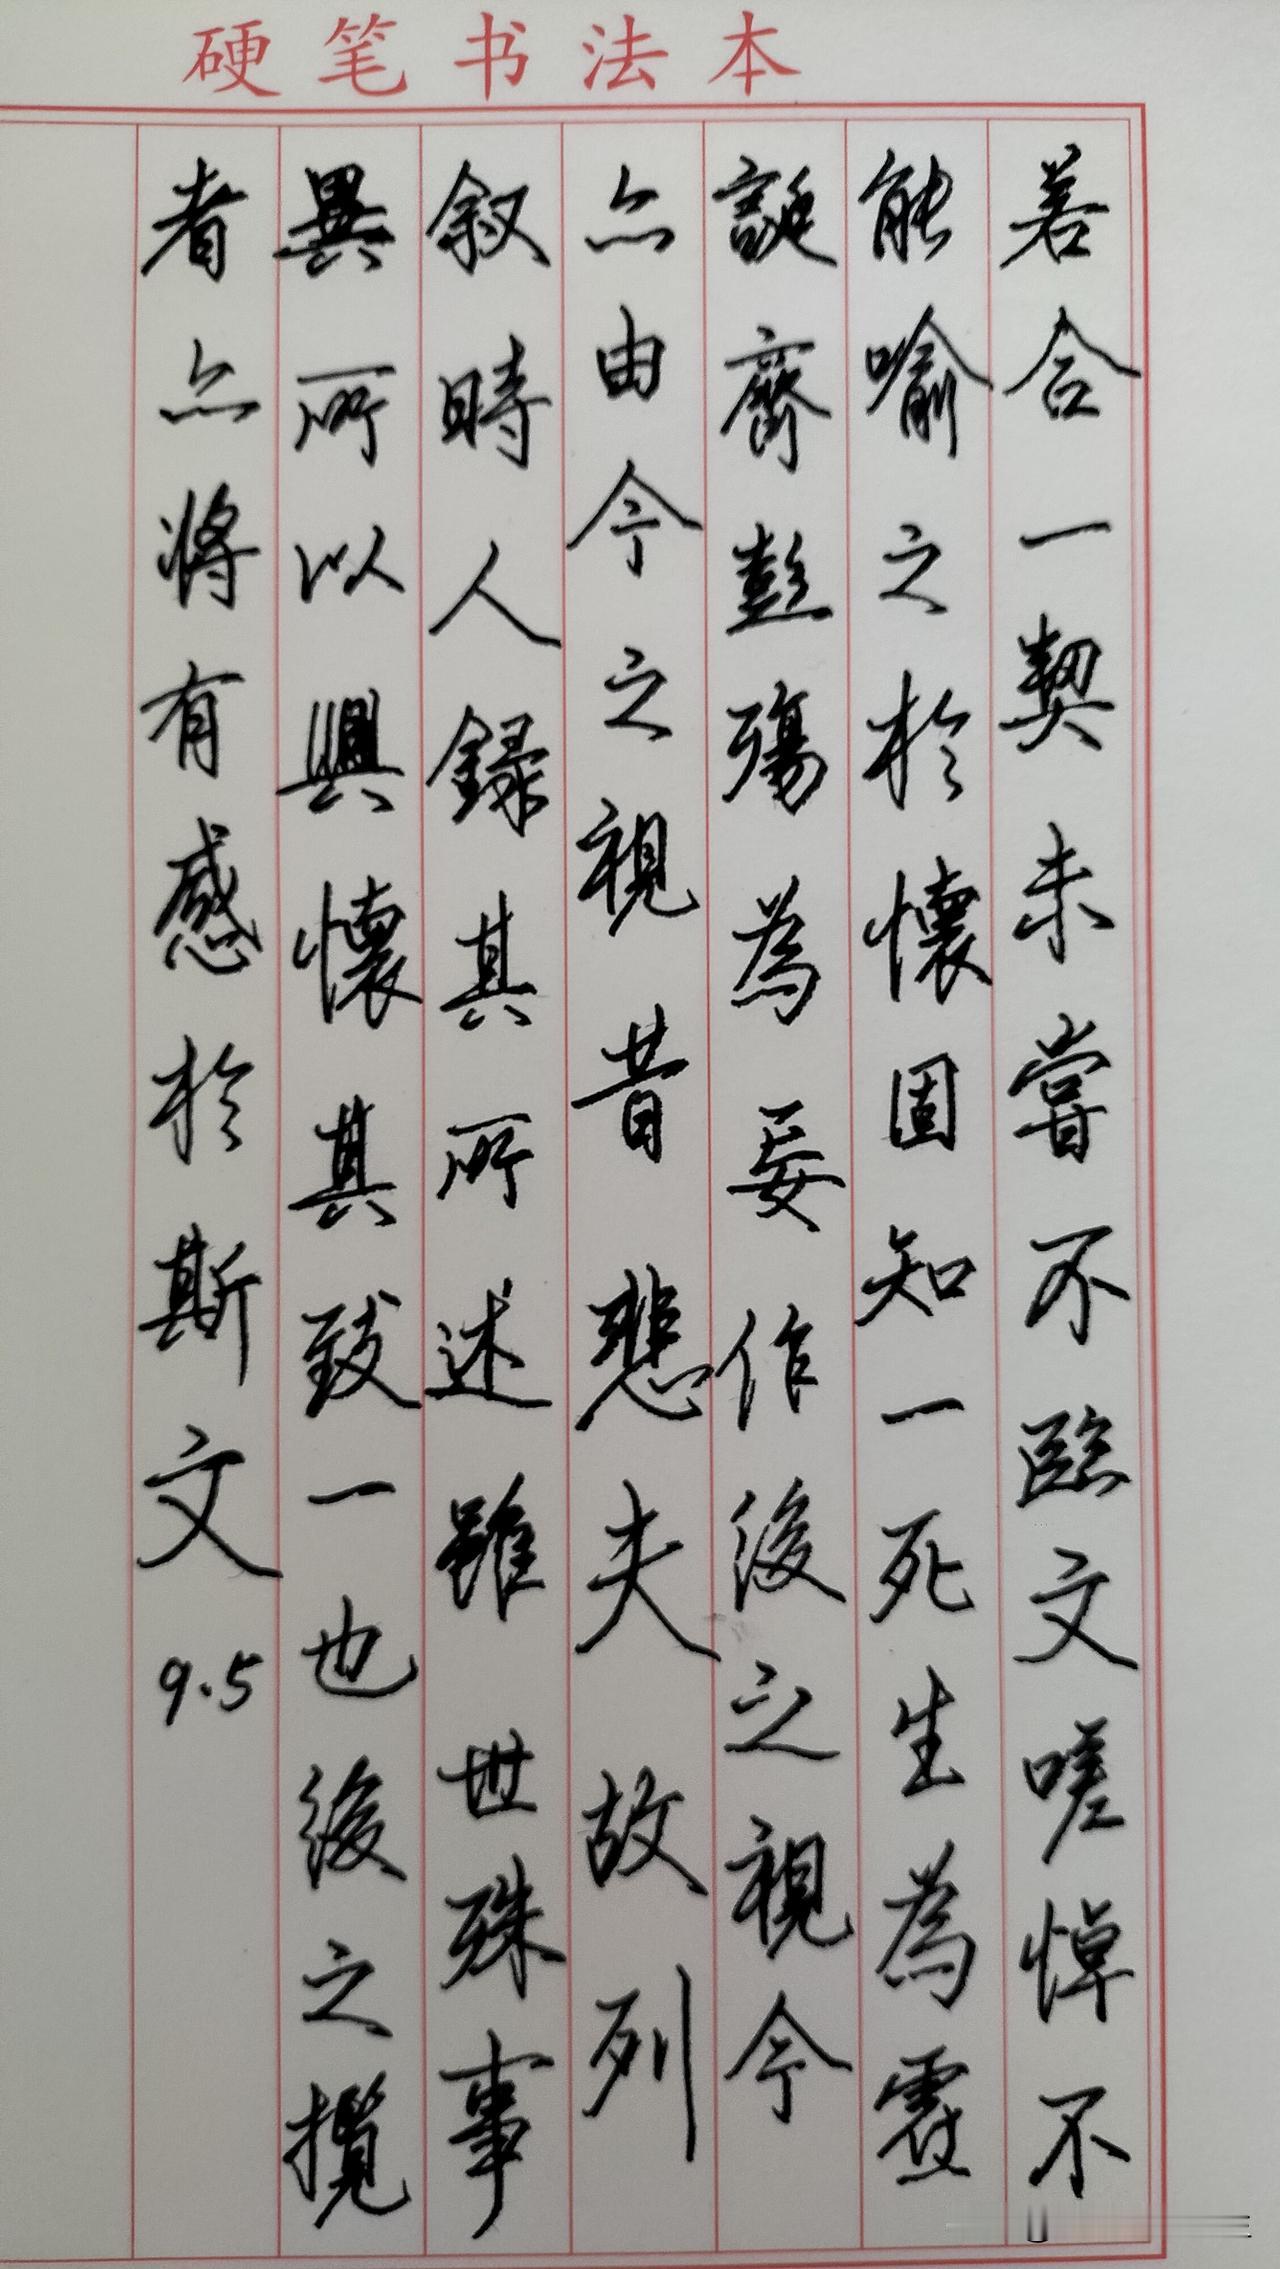 硬笔书法本
若合一契未嘗不臨文嗟悼不
能喻之於懷固知一死生為虛
誕齊彭殤為妄作後之視今
亦由今之視昔悲夫故列
叙時人錄其所述雖世殊事
異所以興懷其致一也後之攬
者亦將有感於斯文
9.5